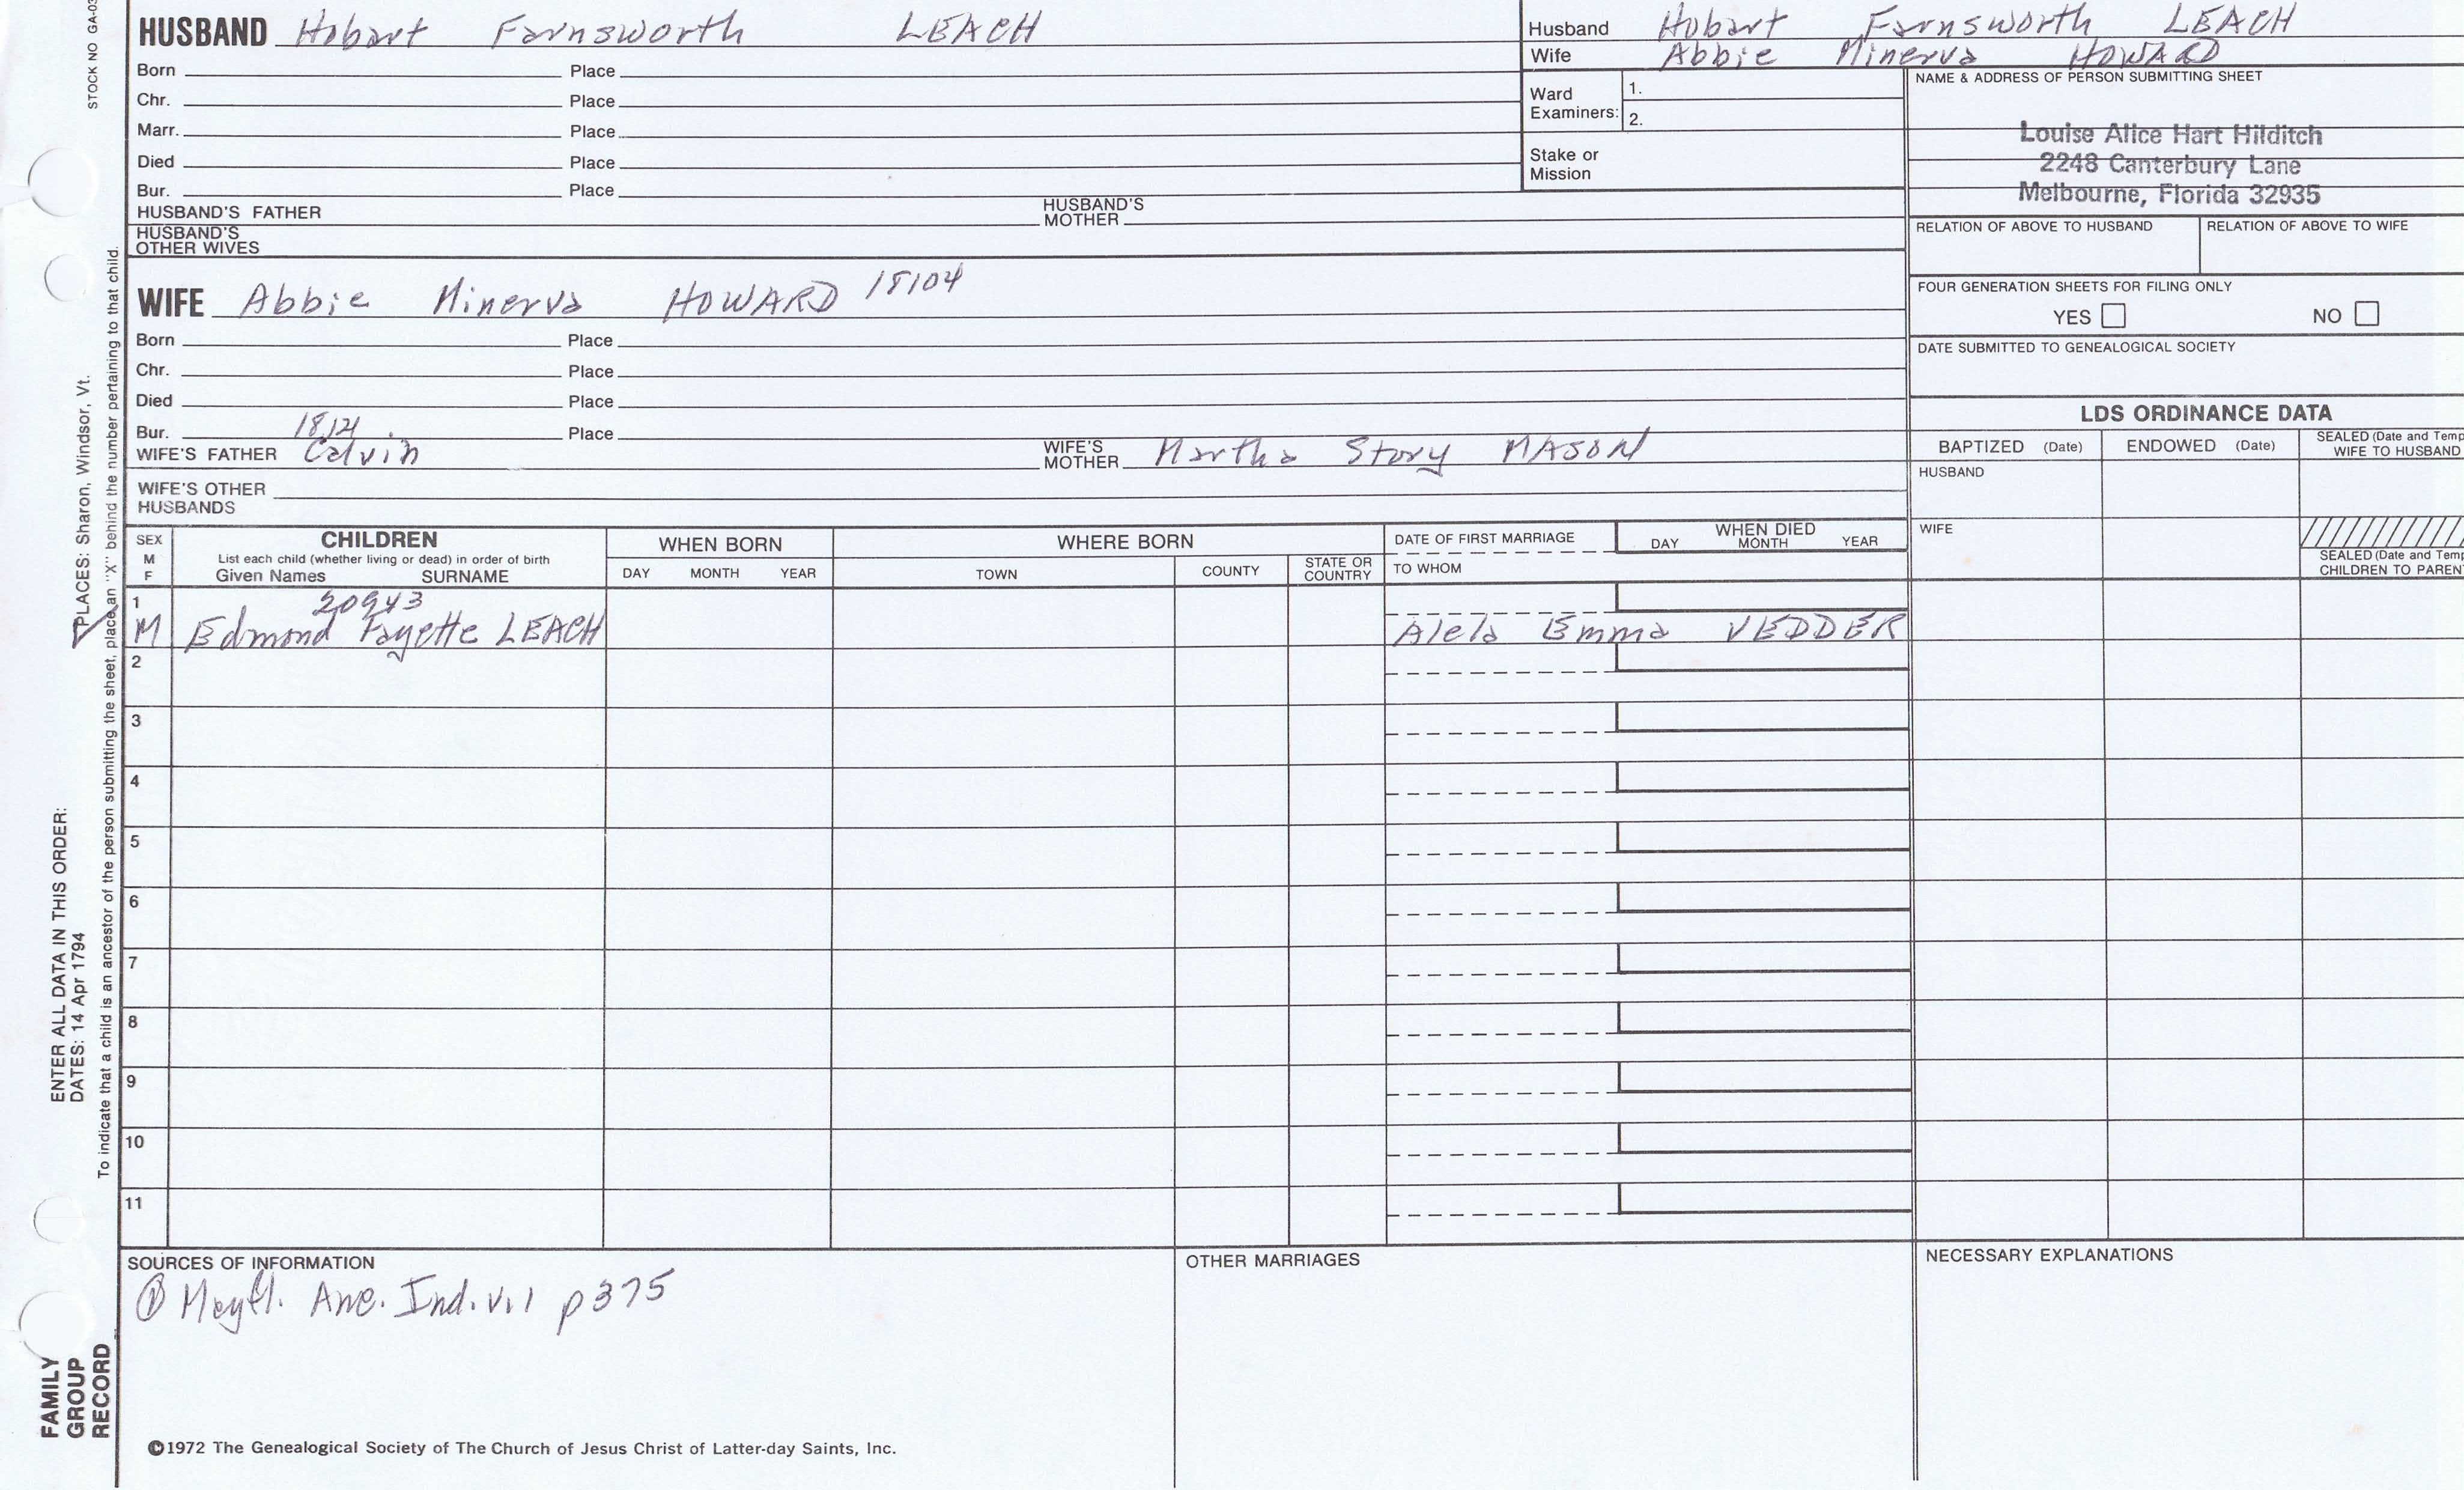 STOCK NO GA-03
HUSBAND Hobart Farnsworth LEACH
Born Place
Chr. Place
Marr. Place
Died Place
Bur. Place
HUSBAND'S FATHER HUSBAND'S MOTHER
HUSBAND'S OTHER WIVES
Husband Hobart Farnsworth LEACH
Wife Abbie Minerva HOWARD
Ward Examiners: 1.
2.
Stake or Mission
NAME & ADDRESS OF PERSON SUBMITTING SHEET
Louise Alice Hart Hilditch
2248 Canterbury Lane
Melbourne, Florida 32935
RELATION OF ABOVE TO HUSBAND RELATION OF ABOVE TO WIFE
FOUR GENERATION SHEETS FOR FILING ONLY
YES NO
DATE SUBMITTED TO GENEALOGICAL SOCIETY
WIFE Abbie Minerva HOWARD 18104
Born Place
Chr. Place
Died Place
Bur. Place
WIFE'S FATHER Calvin WIFE'S MOTHER Martha Story MASON
WIFE'S OTHER HUSBANDS
LDS ORDINANCE DATA
BAPTIZED (Date) ENDOWED (Date) SEALED (Date and Temp
WIFE TO HUSBAND
HUSBAND
WIFE
SEALED (Date and Temp
CHILDREN TO PAREN
SEX M F
CHILDREN
List each child (whether living or dead) in order of birth
Given Names SURNAME
WHEN BORN
DAY MONTH YEAR
WHERE BORN
TOWN COUNTY STATE OR COUNTRY
DATE OF FIRST MARRIAGE
TO WHOM
WHEN DIED
DAY MONTH YEAR
1 20943
M Edmond Fayette LEACH Alela Emma VEDDER
2
3
4
5
6
7
8
9
10
11
SOURCES OF INFORMATION
① Mayfl. Anc. Ind. v.1 p375
OTHER MARRIAGES
NECESSARY EXPLANATIONS
©1972 The Genealogical Society of The Church of Jesus Christ of Latter-day Saints, Inc.
FAMILY
GROUP
RECORD
ENTER ALL DATA IN THIS ORDER:
DATES: 14 Apr 1794
PLACES: Sharon, Windsor, Vt.
To indicate that a child is an ancestor of the person submitting the sheet, place an "X" behind the number pertaining to that child.